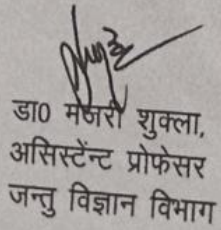 डा0 मंजरी शुक्ला,
असिस्टेन्ट प्रोफेसर
जन्तु विज्ञान विभाग